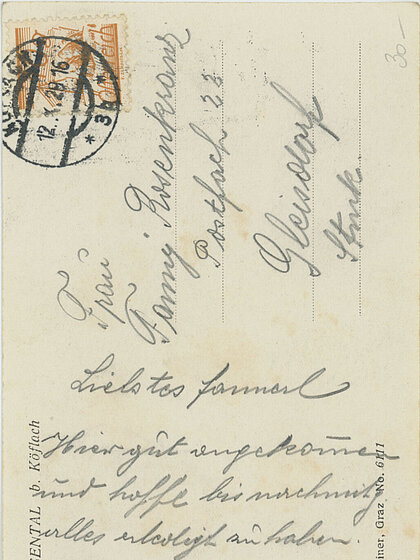 12. X. 29 16
* 3b *
30-
Frau
Fanny Rosenkranz
Postfach 23
Gleisdorf
Stmk.
Liebstes fannerl
Hier gut angekommen
und hoffe bis nachmitg
alles erledigt zu haben.
ENTAL b. Köflach
iner, Graz No. 6111